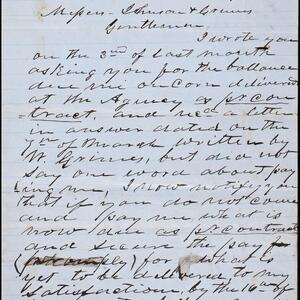 Messrs Johnson & Grimes
Gentlemen
I wrote you
on the 3rd of last month
asking you for the ballance
due me on Corn delivered
at the Agency as pr con
=tract, and recd a letter
in answer dated on the
7th of March written by
W. Grimes, but did not
say one word about pay
ing me, I now notify you
that if you do not come
and pay me what is
now due as pr contract
and secure the pay for
for what is
yet to be delivered to my
satisfaction, by the 16th of